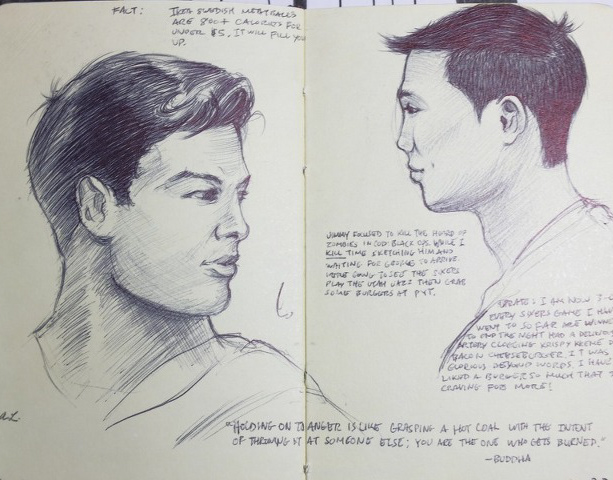 FACT: IKEA SWEDISH MEATBALLS
ARE 800+ CALORIES FOR
UNDER $5. IT WILL FILL YOU
UP.
JIMMY FOCUSED TO KILL THE HOARD OF
ZOMBIES IN COD: BLACK OPS. WHILE I
KILL TIME SKETCHING HIM AND
WAITING FOR GEORGE TO ARRIVE.
WE'RE GOING TO SEE THE SIXERS
PLAY THE UTAH JAZZ THEN GRAB
SOME BURGERS AT PYT.
UPDATE: I AM NOW
EVERY SIXERS GAME I HAVE
WENT TO SO FAR ARE WINNING
TO END THE NIGHT HAD A DELICIOUS
ARTERY CLOGGING KRISPY KREME
BACON CHEESEBURGER. IT WAS
GLORIOUS BEYOND WORDS. I HAVE
LIKED A BURGER SO MUCH THAT I
CRAVING FOR MORE!
"HOLDING ON TO ANGER IS LIKE GRASPING A HOT COAL WITH THE INTENT
OF THROWING IT AT SOMEONE ELSE; YOU ARE THE ONE WHO GETS BURNED."
-BUDDHA